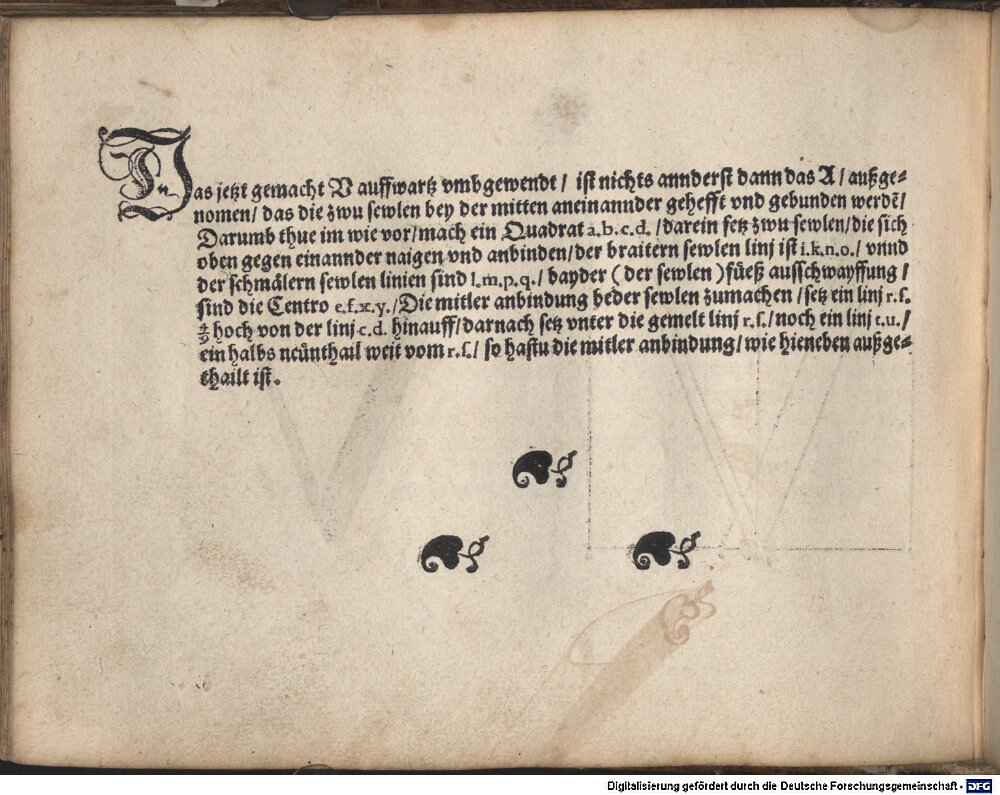 Das jetzt gemacht V auffwartz vmbgewendt / ist nichts annderst dann das A / außge⸗
nomen / das die zwu sewlen bey der mitten aneinannder gehefft vnd gebunden werdē /
Darumb thue im wie vor / mach ein Quadrat a.b.c.d. / darein setz zwu sewlen / die sich
oben gegen einannder naigen vnd anbinden / der braitern sewlen linj ist i.k.n.o. / vnnd
der schmälern sewlen linien sind l.m.p.q. / bayder ( der sewlen ) füeß ausschwayffung /
sind die Centro e.f.x.y. / Die mitler anbindung beder sewlen zumachen / setz ein linj r.s.
4/9 hoch von der linj c.d. hinauff / darnach setz vnter die gemelt linj r.s. / noch ein linj t.u. /
ein halbs neünthail weit vom r.s. / so hastu die mitler anbindung / wie hieneben außge⸗
thailt ist.
Digitalisierung gefördert durch die Deutsche Forschungsgemeinschaft - DFG